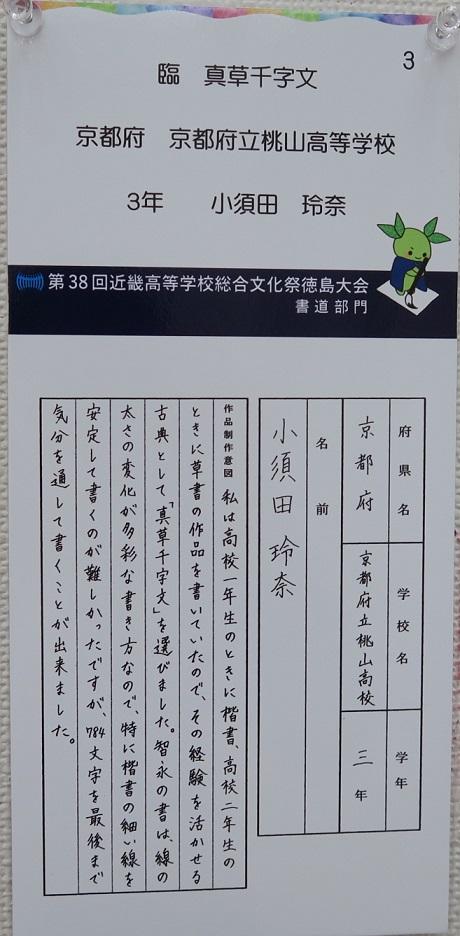 3
臨　真草千字文
京都府　京都府立桃山高等学校
3年　　小須田　玲奈
第38回近畿高等学校総合文化祭徳島大会
書道部門
府県名　学校名　学年
京都府　京都府立桃山高校　三年
名前
小須田玲奈
作品制作意図　私は高校一年生のときに楷書、高校二年生の
ときに草書の作品を書いていたので、その経験を活かせる
古典として「真草千字文」を選びました。智永の書は、線の
太さの変化が多彩な書き方なので、特に楷書の細い線を
安定して書くのが難しかったですが、784文字を最後まで
気分を通して書くことが出来ました。